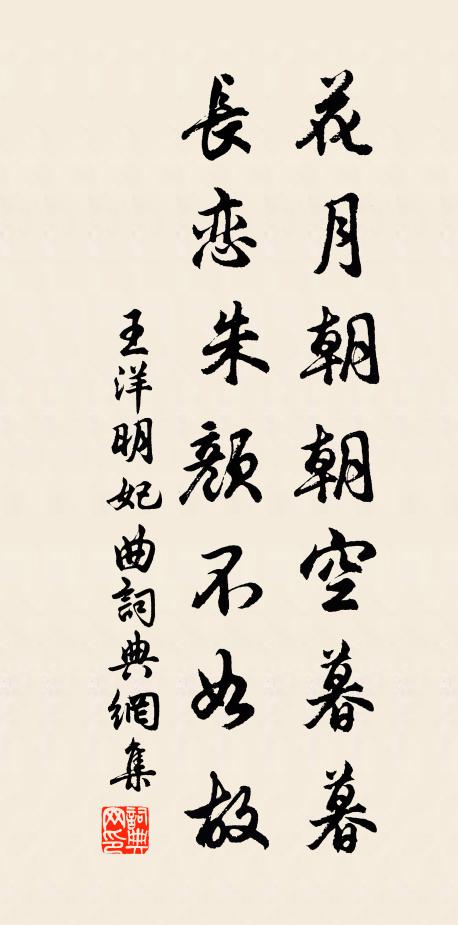 花月朝朝空暮暮
長恋朱顏不如故
王洋明妃曲詞典網集
詞典网印